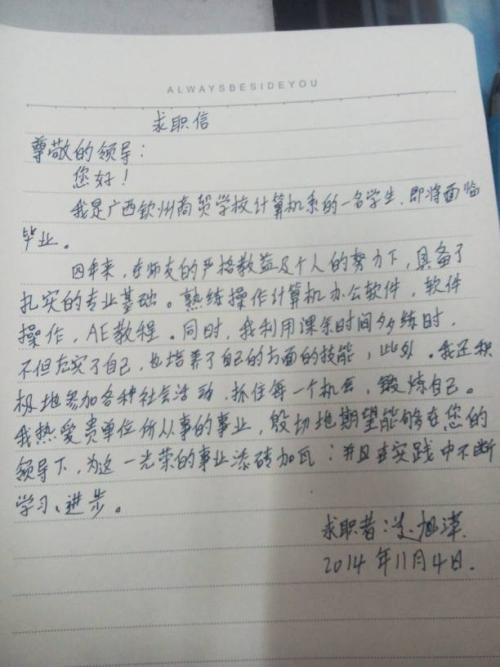 ALWAYSBESIDEYOU
求职信
尊敬的领导：
您好！
我是广西钦州商贸学校计算机系的一名学生，即将面临
毕业。
四年来，在师友的严格教益及个人的努力下，具备了
扎实的专业基础。熟练操作计算机办公软件，软件
操作，AE教程。同时，我利用课余时间多练时，
不但充实了自己，也培养了自己的方面的技能，此外。我还积
极地参加各种社会活动，抓住每一个机会，锻炼自己。
我热爱贵单位所从事的事业，殷切地期望能够在您的
领导下，为这一光荣的事业添砖加瓦；并且在实践中不断
学习、进步。
求职者：
2014年11月4日.